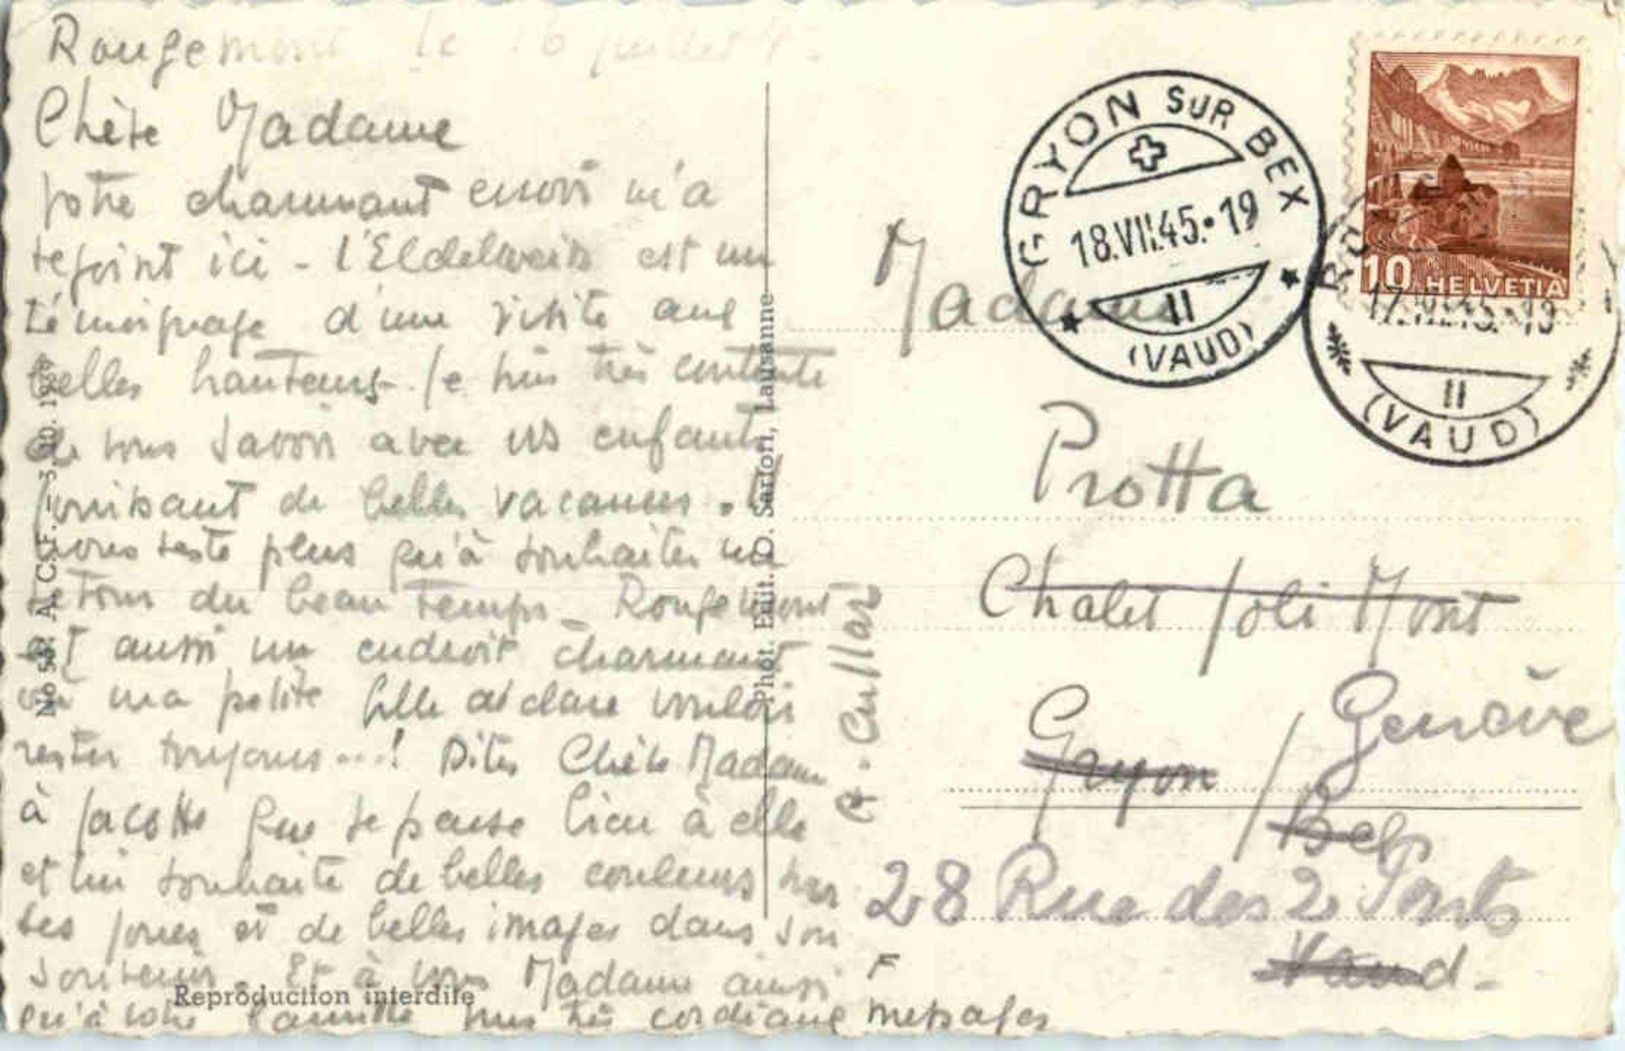 Rougemont le 16 juillet 45
Chère Madame
Votre charmant envoi m'a
rejoint ici - l'Eldelweiss est un
témoignage d'une visite aux
belles hauteurs - Je suis très contente
de vous savoir avec vos enfants
jouissant de belles vacances. Il
nous reste plus qu'à souhaiter un
retour du beau temps. Rougemont
est aussi un endroit charmant
où ma petite fille déclare vouloir
rester toujours...! Dites Chère Madame
à Jacotte que je pense bien à elle
et lui souhaite de belles couleurs sur
ses joues et de belles images dans son
souvenir. Et à vous Madame ainsi
qu'à votre famille mes très cordiaux messages
No 58. A. C.S.F. - 3. 10. 19
Reproduction interdite
Phot. Edit. O. Sartori, Lausanne
GRYON SUR BEX
18.VII.45.-19
II
(VAUD)
10 HELVETIA
17.VII.45.-19
II
(VAUD)
Madame
Protta
Chalet Joli Mont
Gryon / Genève
Bex
28 Rue des 2 Ponts
Vaud -